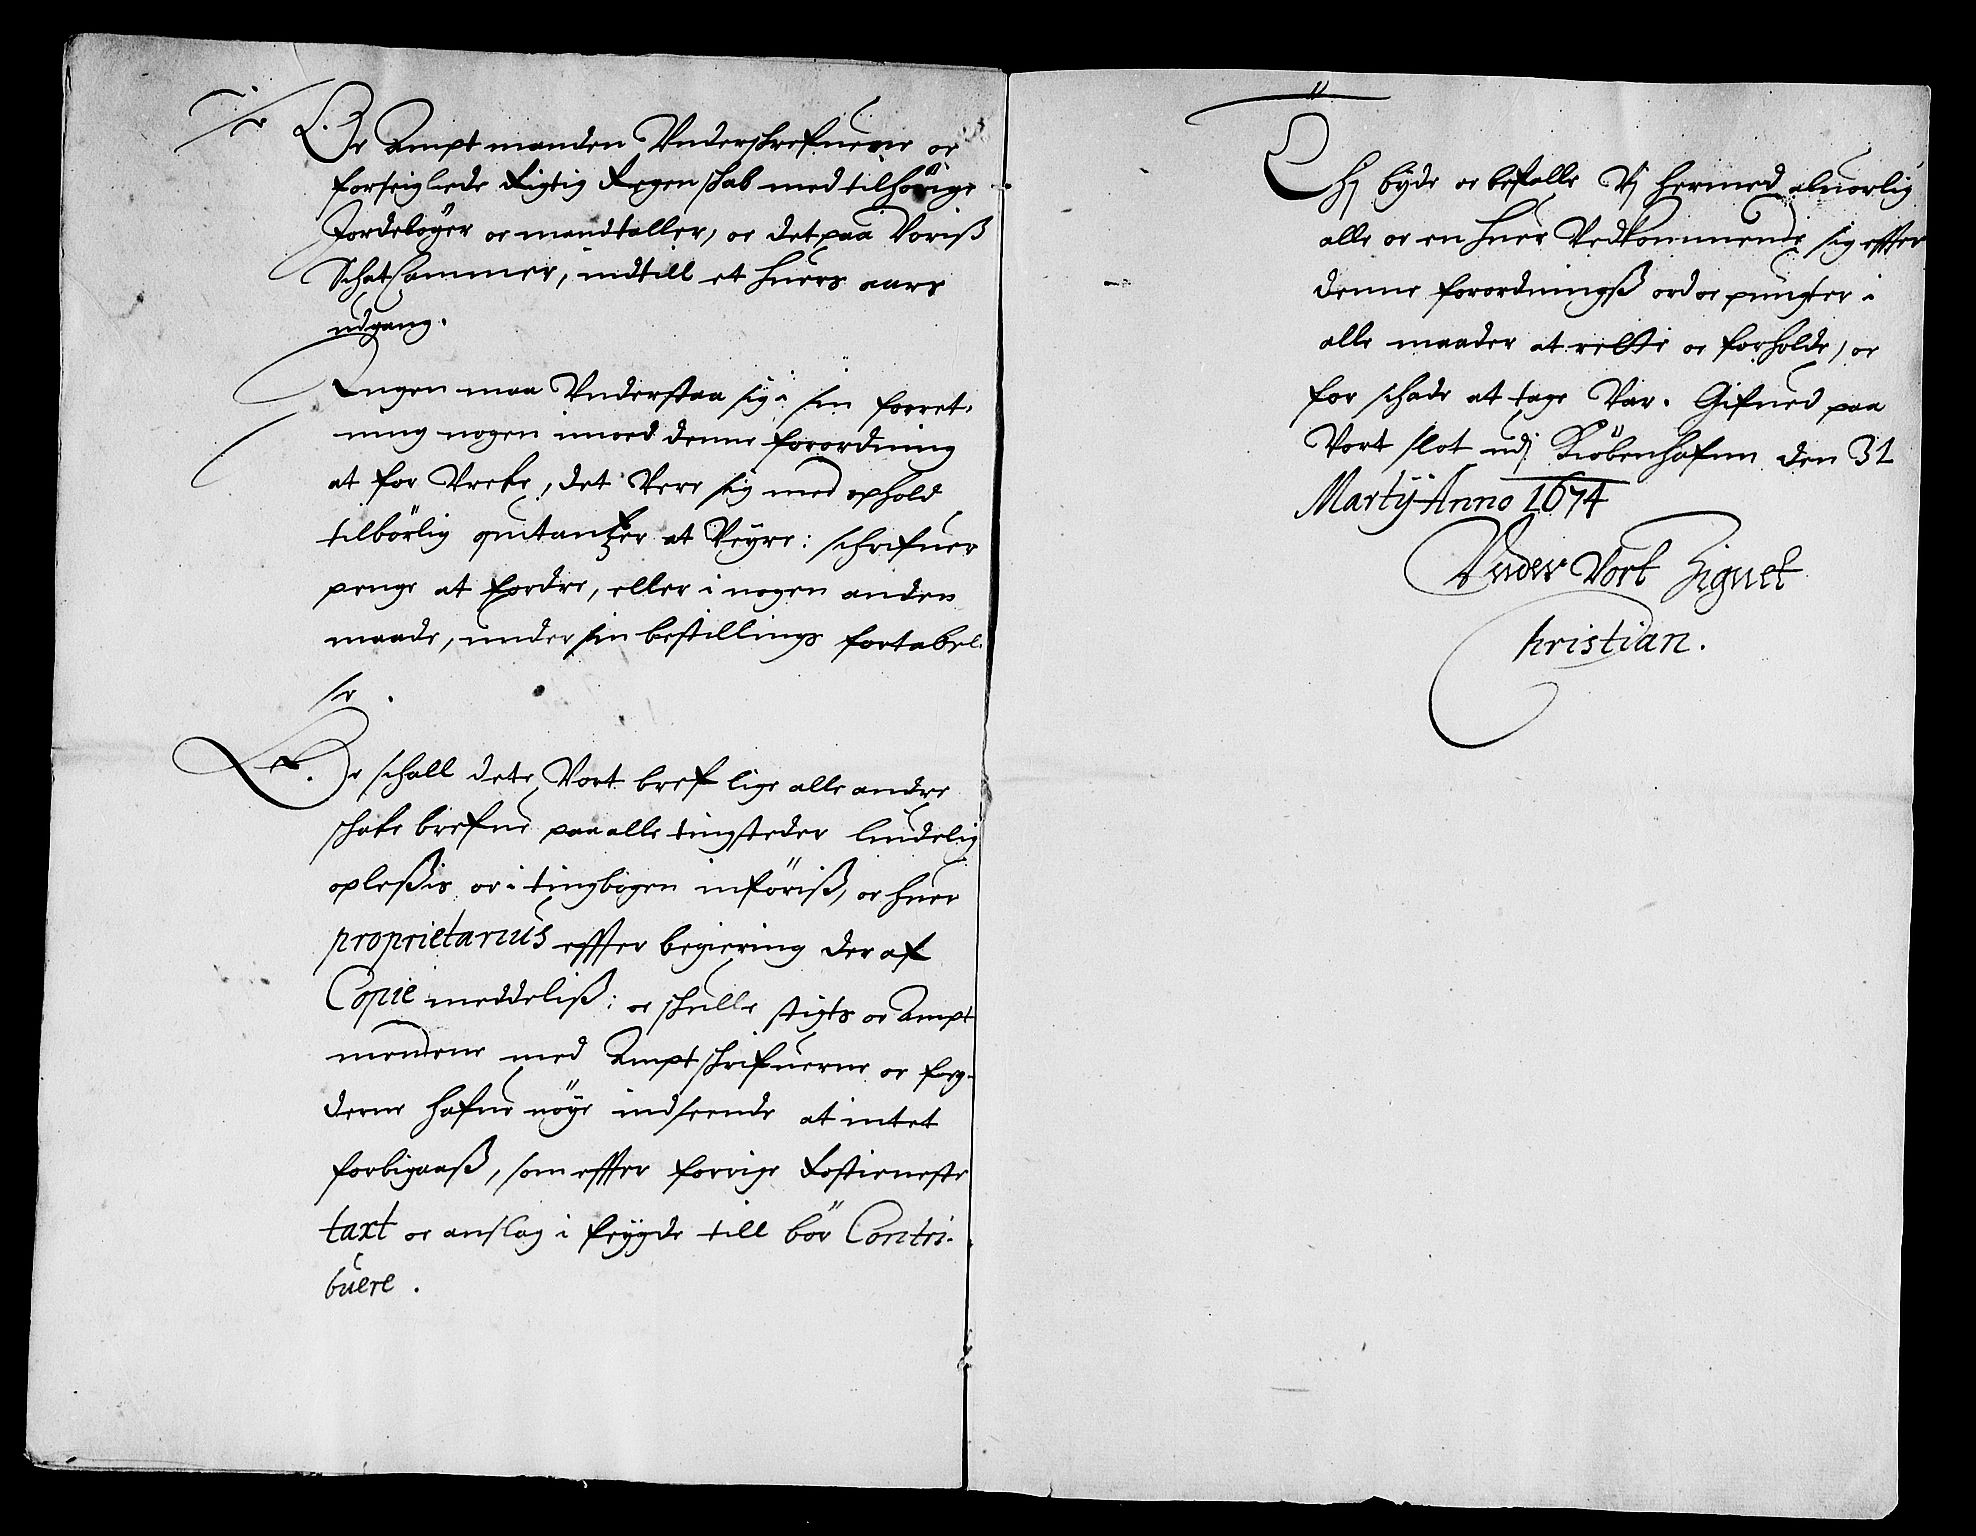 Oc Amptmanden Underschrefne oc
forseiglede Rigtig Regenschab med tilhörige
Jordebøger oc mandtaller, oc det paa Voriß
Schatkammer, indtill et huers aars
udgang.
Ingen maa Understaa sig i sin forret-
ning nogen imod denne forordning
at for Vrete, det Vere sig med ophold
tilbörlig quitantzer at Veyre: schrifuer
penge at fordre, eller i nogen anden
maade, under sin bestillings fortabel-
se.
Oc schall dete Vort bref lige alle andre
schate brefue paa alle tingsteder liudelig
opleßis oc i tingbogen införiß, oc huer
proprietarius effter begiering der af
Copie meddeliß: oc schulle stigts oc Ampt
mendene med Amptschrifuerne oc fog-
derne hafue nöye indseende at intet
forbigaaß, som effter forrige Rostieneste
taxt oc anslag i frygde till bör Contri-
buere.
Thj byde oc befalle Vj hermed aluorlig
alle oc en huer Vedkommende sig effter
denne forordningß ord oc puncter i
alle maader at rette oc forholde, oc
for schade at tage Var. Gifued paa
Vort slot udj Kiöbenhafnn den 31
Martij Anno 1674
Under Vort Signet
Christian.